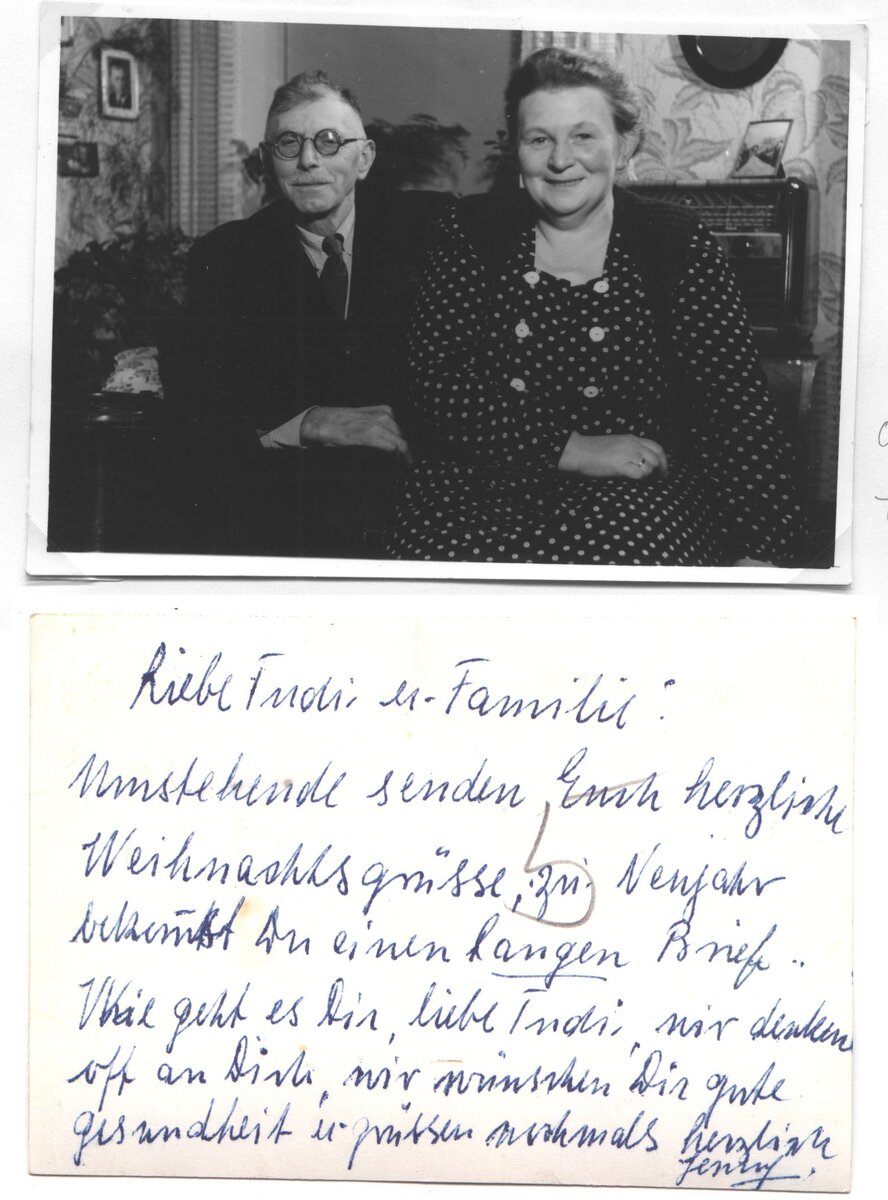 Liebe Trudi u. Familie!
Umstehende senden Euch herzliche
Weihnachtsgrüsse, zu Neujahr
bekommst Du einen langen Brief.
Wie geht es Dir, liebe Trudi, wir denken
oft an Dich, wir wünschen Dir gute
gesundheit u. grüssen nochmals herzlich
Jenny.
5